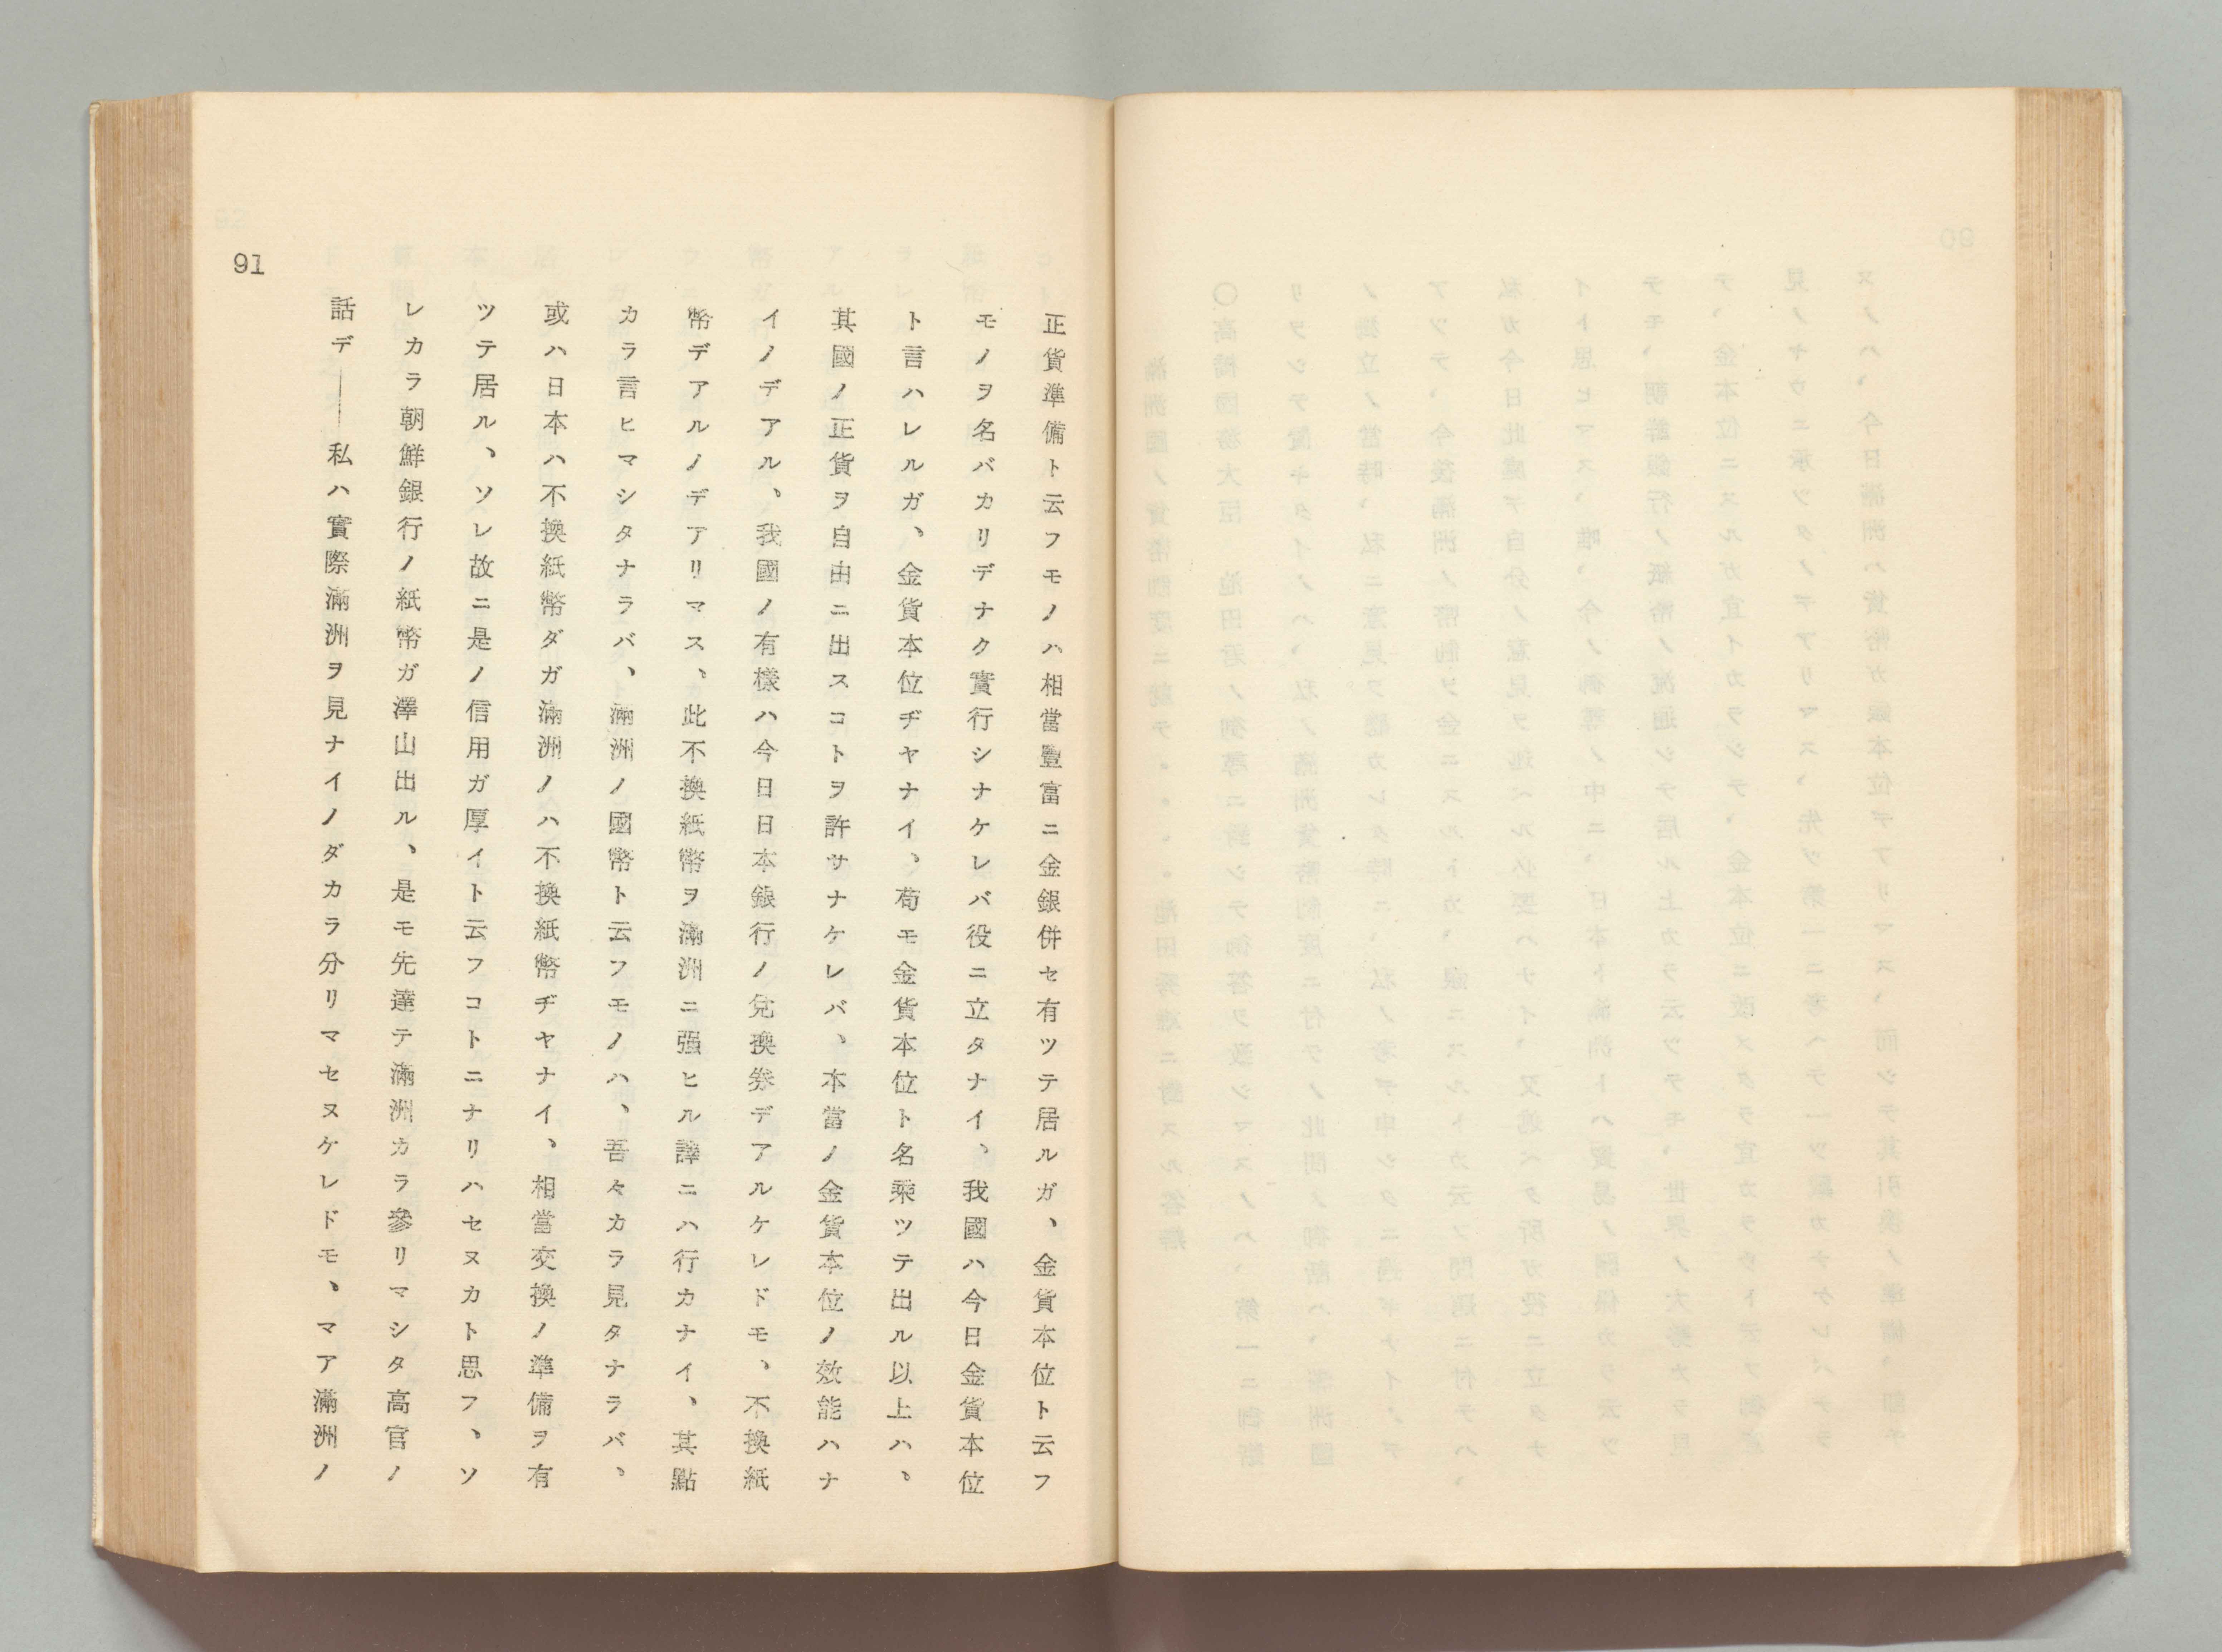 正貨準備ト云フモノハ相當豐富ニ金銀併セ有ツテ居ルガ、金貨本位ト云フ
モノヲ名バカリデナク實行シナケレバ役ニ立タナイ、我國ハ今日金貨本位
ト言ハレルガ、金貨本位ヂヤナイ、苟モ金貨本位ト名乘ツテ出ル以上ハ、
其國ノ正貨ヲ自由ニ出スコトヲ許サナケレバ、本當ノ金貨本位ノ效能ハナ
イノデアル、我國ノ有樣ハ今日日本銀行ノ兌換券デアルケレドモ、不換紙
幣デアルノデアリマス、此不換紙幣ヲ滿洲ニ强ヒル譯ニハ行カナイ、其點
カラ言ヒマシタナラバ、滿洲ノ國幣ト云フモノハ、吾々カラ見タナラバ、
或ハ日本ハ不換紙幣ダガ滿洲ノハ不換紙幣ヂヤナイ、相當交換ノ準備ヲ有
ツテ居ル、ソレ故ニ是ノ信用ガ厚イト云フコトニナリハセヌカト思フ、ソ
レカラ朝鮮銀行ノ紙幣ガ澤山出ル、是モ先達テ滿洲カラ參リマシタ高官ノ
話デ――私ハ實際滿洲ヲ見ナイノダカラ分リマセヌケレドモ、マア滿洲ノ
91